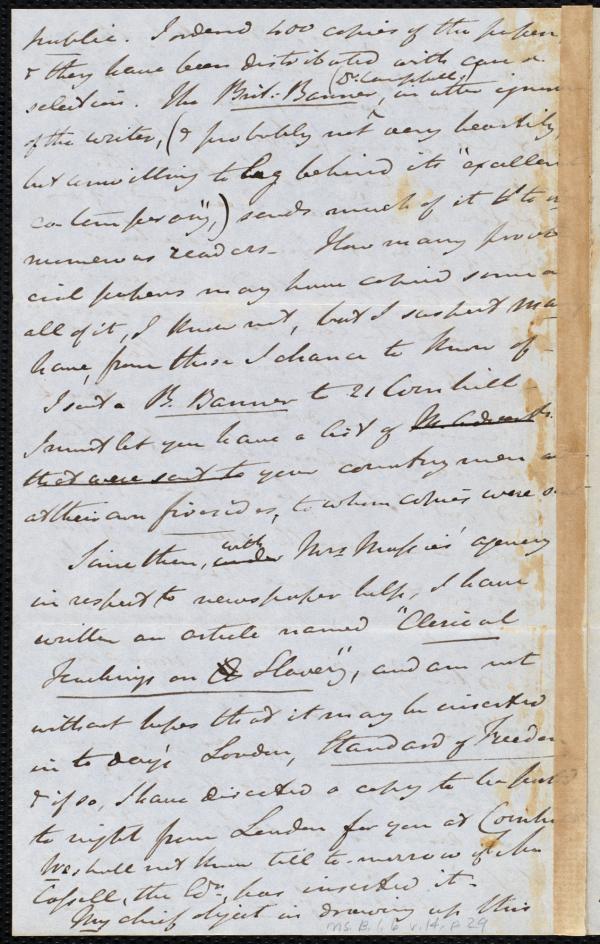 public. I ordered 400 copies of the paper
& they have been distributed with care &
selection. The Brit. Banner, (Dr. Campbell,) in utter ignor
of the writer, (& probably not very heartily
but unwilling to lag behind its "excellent
contemporary",) sends much of it to
numerous readers. How many provin
cial papers may have copied some or
all of it, I know not, but I suspect ma
have, from those I chance to know of-
I sent a B. Banner to 21 Cornhill
I must let you have a list of
that were sent to your countrymen
at their own firesides, to whom copies were
Since then, with under Mrs Massies' agency
in respect to newspaper help, I have
written an article named "Clerical
Teachings on Slavery", and am not
without hopes that it may be inserted
in to day's London, Standard of Freedom
& if so, I have directed a copy to be posted
to night from London for you at Cornhi
We shall not know till to-morrow if Jno
Cassell, the Edr. has inserted it-
My chief object in drawing up this
Ms. B. 1. 6 v. 14, p. 29